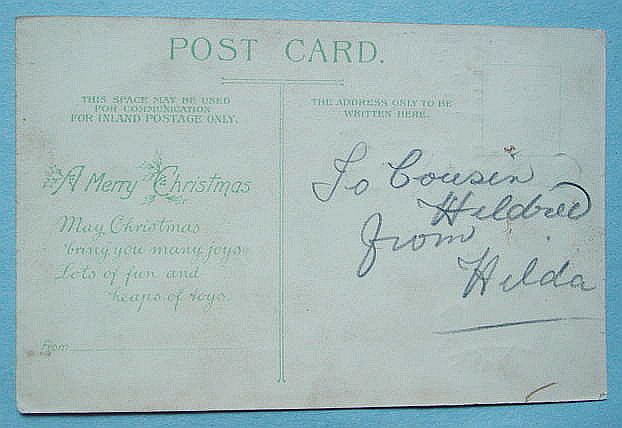 POST CARD.
THIS SPACE MAY BE USED
FOR COMMUNICATION
FOR INLAND POSTAGE ONLY.
THE ADDRESS ONLY TO BE
WRITTEN HERE.
A Merry Christmas
May Christmas
bring you many joys
Lots of fun and
heaps of toys.
From
To Cousin
Hildred
from
Hilda